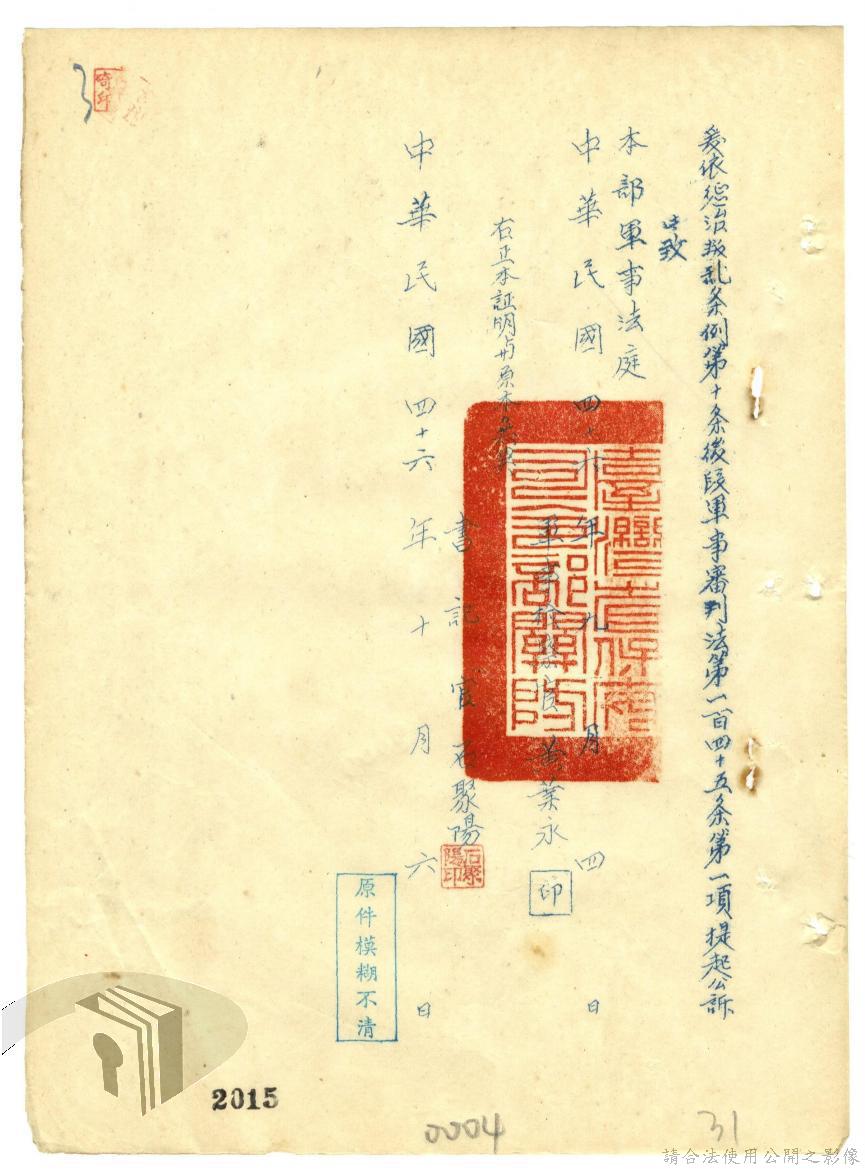 爰依惩治叛乱条例第十条後段軍事審判法第一百四十五条第一項提起公訴
此致
本部軍事法庭
中華民國四十六年九月四日
軍事檢察官黃葉永
印
右正本証明与原本無異
書記官石聚陽
石聚陽印
中華民國四十六年十月六日
臺灣省保安司令部關防
原件模糊不清
2015
0004
31
請合法使用公開之影像